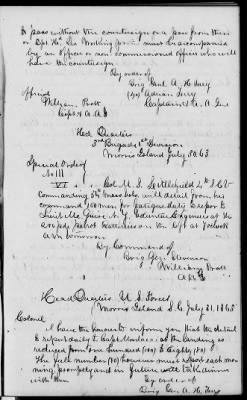 to pass without the countersign or a pass from these
or Dpt Hd. Qrs Working parties must be accompanied
by an officer or non commissioned officer who will
have the countersign
By order of
Brig Genl. A. H. Terry
(sd) Adrian Terry
Official Captain & A. A. Genl
William
Capt & A A A G
Head Quarters
3rd Brigade 1st Division
Morris Island July 30. 63
Special Orders
No 111
VI. Col. M. S. Littlefield 4th S.C.V.
commanding 54th Mass. Vols. will detail from his
command men for fatigue duty to report to
Lieut N.Y. Volunteer Engineers at the
on the left at 7 o'clock
A.M. tomorrow
By Command of
Brig Gen. Stevenson
William
A.A.A.G
Head Quarters U. S. Forces
Morris Island S. C. July 31. 1863
Colonel
I have the honor to inform you that the detail
to report daily to Capt at the landing is
reduced from one hundred (100) to Eighty (80)
The full number (80) however must report each morn
ing promptly and in future will take dinner
with them
By order of
Brig. Gen. A. H. Terry